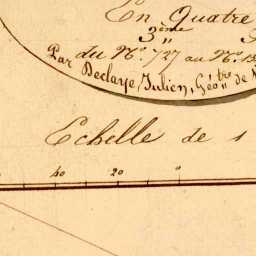 En Quatre
3ème
du No. 727 au No.
Par Declaye Julien, Géotre de
Echelle de 1
40 20 0